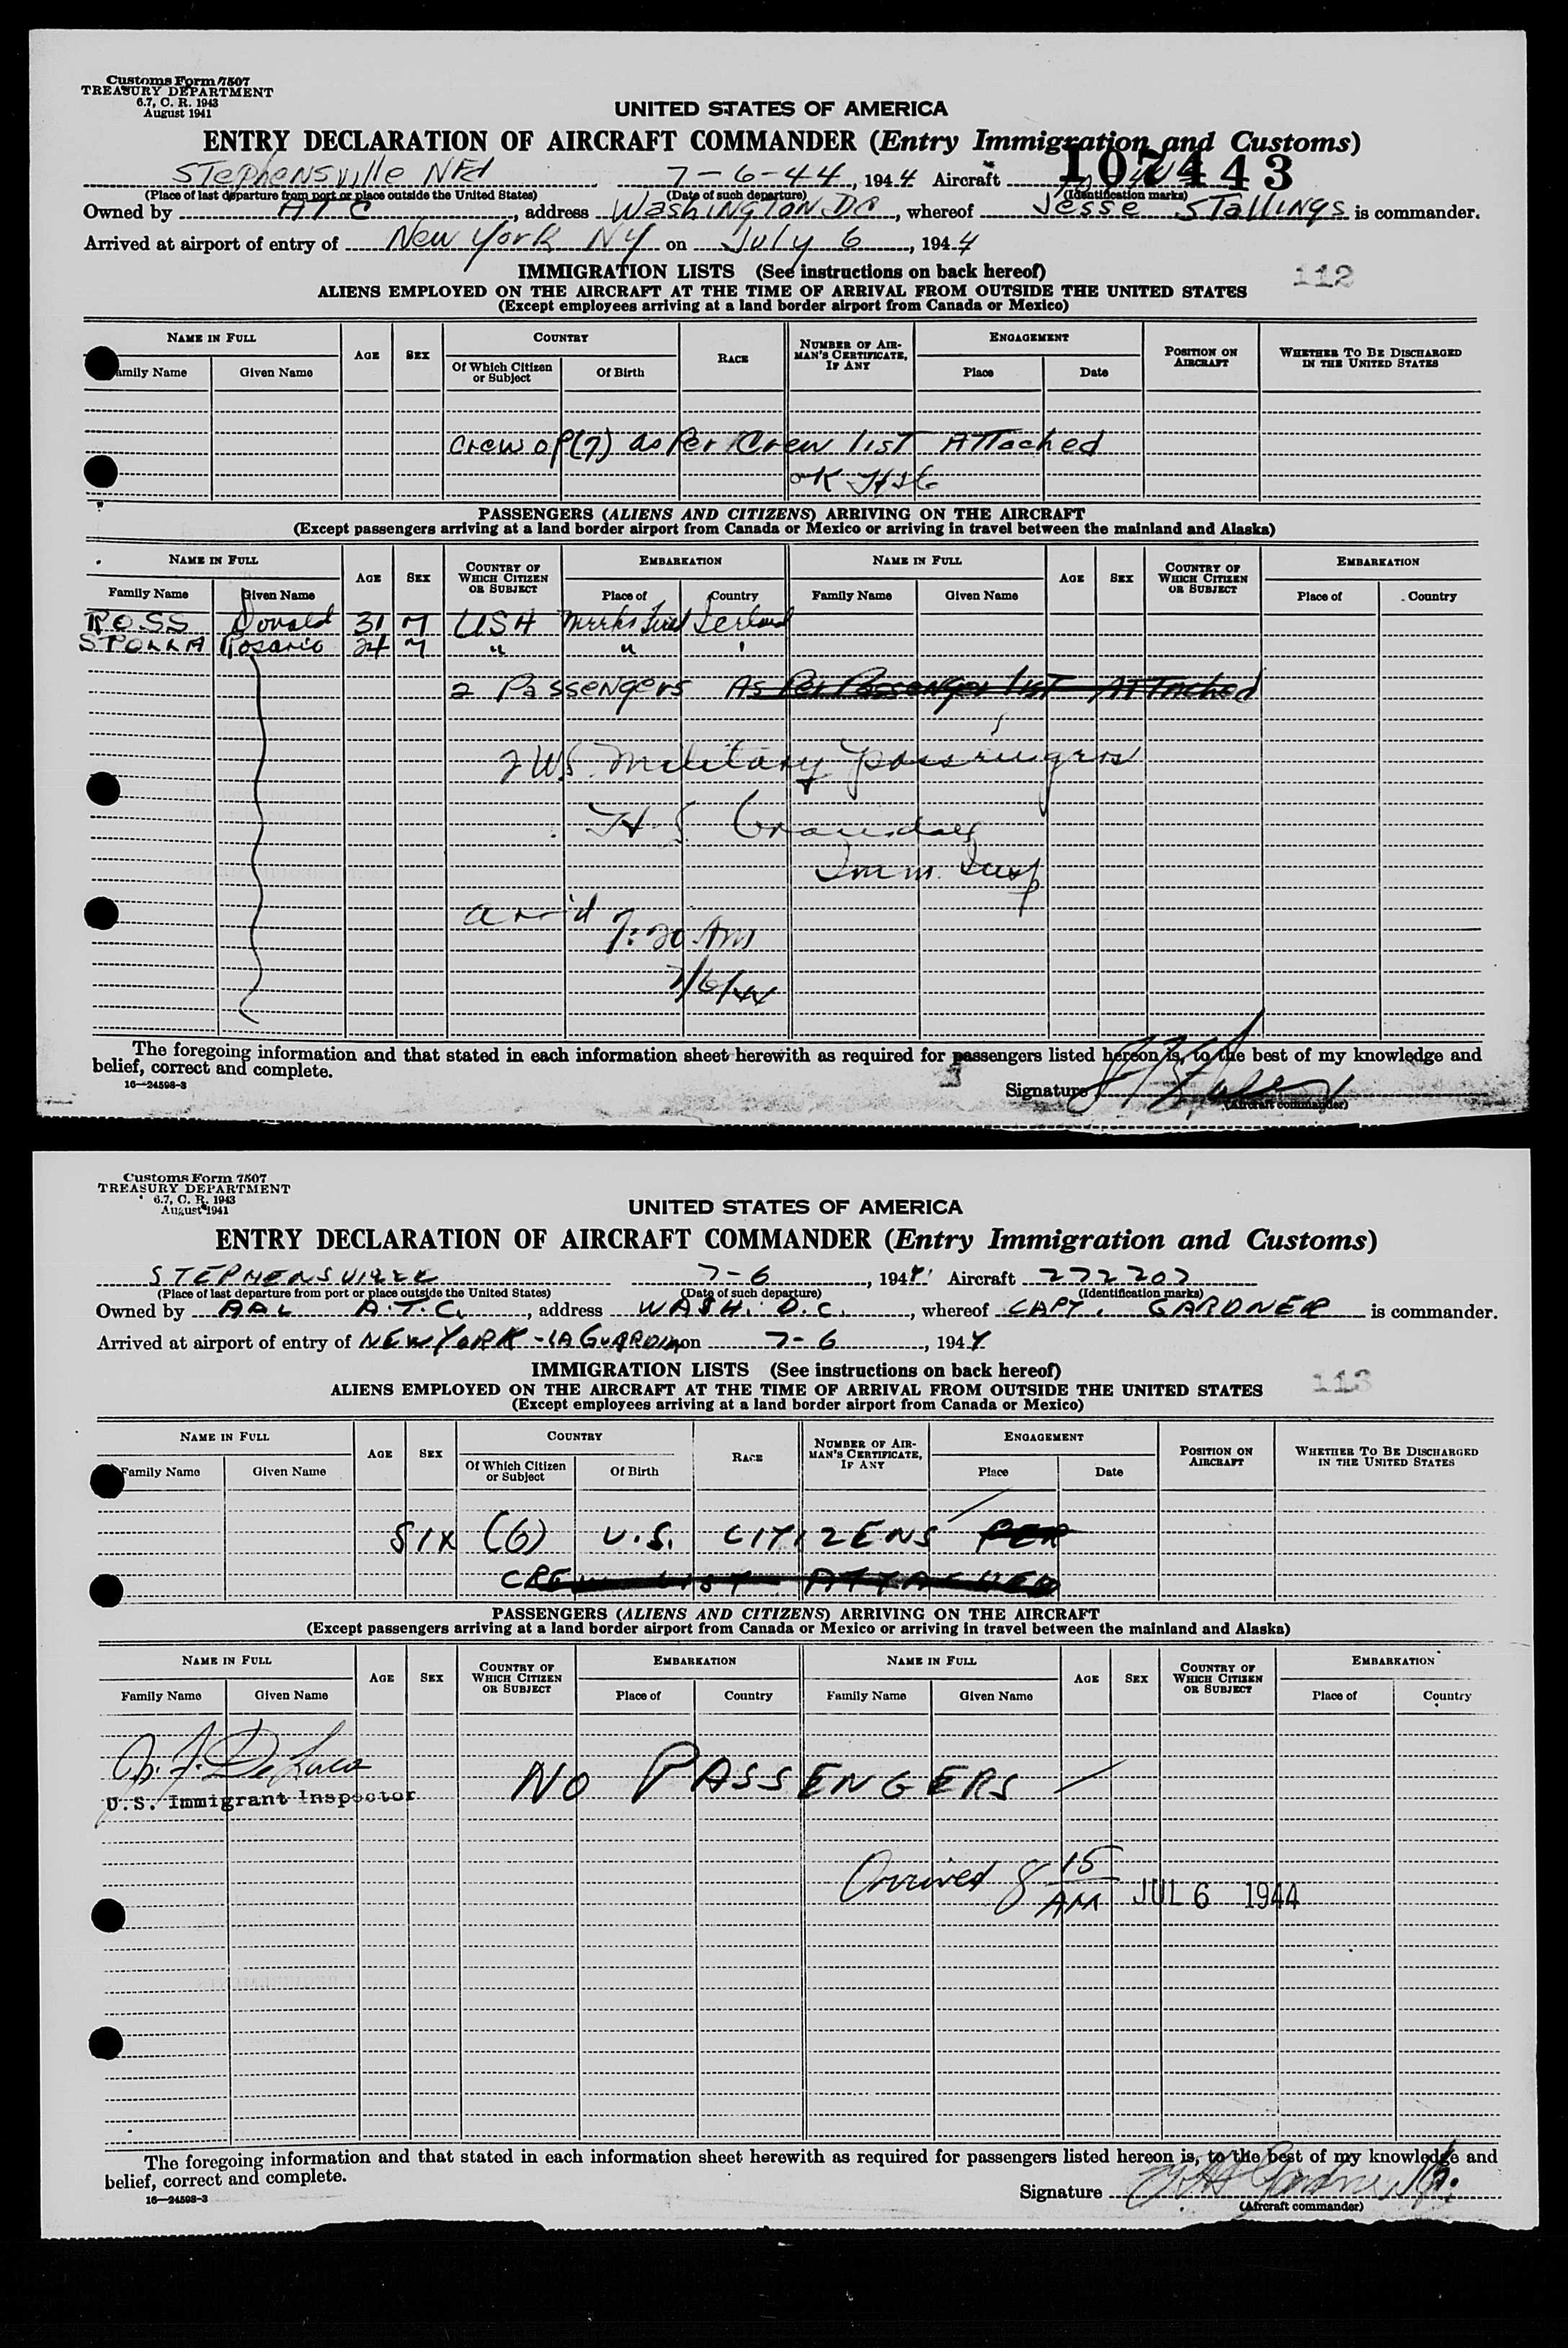 Customs Form 7507
TREASURY DEPARTMENT
6.7, C. R. 1943
August 1941
UNITED STATES OF AMERICA
ENTRY DECLARATION OF AIRCRAFT COMMANDER (Entry Immigration and Customs)
107443
Stephensville Nfd 7-6-44, 1944 Aircraft
(Place of last departure from port or place outside the United States) (Date of such departure) (Identification marks)
Owned by ATC, address Washington DC, whereof Jesse Stallings is commander.
Arrived at airport of entry of New York NY on July 6, 1944
IMMIGRATION LISTS (See instructions on back hereof)
112
ALIENS EMPLOYED ON THE AIRCRAFT AT THE TIME OF ARRIVAL FROM OUTSIDE THE UNITED STATES
(Except employees arriving at a land border airport from Canada or Mexico)
NAME IN FULL AGE SEX COUNTRY RACE NUMBER OF AIRMAN'S CERTIFICATE, IF ANY ENGAGEMENT POSITION ON AIRCRAFT WHETHER TO BE DISCHARGED IN THE UNITED STATES
Family Name Given Name Of Which Citizen or Subject Of Birth Place Date
Crew of (7) as Per Crew list Attached
OK HSG
PASSENGERS (ALIENS AND CITIZENS) ARRIVING ON THE AIRCRAFT
(Except passengers arriving at a land border airport from Canada or Mexico or arriving in travel between the mainland and Alaska)
NAME IN FULL AGE SEX COUNTRY OF WHICH CITIZEN OR SUBJECT EMBARKATION NAME IN FULL AGE SEX COUNTRY OF WHICH CITIZEN OR SUBJECT EMBARKATION
Family Name Given Name Place of Country Family Name Given Name Place of Country
ROSS Donald 31 M USA Meeks Field
Rosario 24 M " " "
2 Passengers As Per Passenger list Attached
2 US Military passengers
H. S.
Imm. Insp
arr'd
7:20 AM
7/6/44
The foregoing information and that stated in each information sheet herewith as required for passengers listed hereon is, to the best of my knowledge and
belief, correct and complete.
16—24598-3
Signature
(Aircraft commander)
Customs Form 7507
TREASURY DEPARTMENT
6.7, C. R. 1943
August 1941
UNITED STATES OF AMERICA
ENTRY DECLARATION OF AIRCRAFT COMMANDER (Entry Immigration and Customs)
STEPHENSVILLE 7-6, 1944 Aircraft 272207
(Place of last departure from port or place outside the United States) (Date of such departure) (Identification marks)
Owned by AAL A.T.C., address WASH. D.C., whereof CAPT. GARDNER is commander.
Arrived at airport of entry of NEW YORK - LA GUARDIA on 7-6, 1944
IMMIGRATION LISTS (See instructions on back hereof)
113
ALIENS EMPLOYED ON THE AIRCRAFT AT THE TIME OF ARRIVAL FROM OUTSIDE THE UNITED STATES
(Except employees arriving at a land border airport from Canada or Mexico)
NAME IN FULL AGE SEX COUNTRY RACE NUMBER OF AIRMAN'S CERTIFICATE, IF ANY ENGAGEMENT POSITION ON AIRCRAFT WHETHER TO BE DISCHARGED IN THE UNITED STATES
Family Name Given Name Of Which Citizen or Subject Of Birth Place Date
SIX (6) U.S. CITIZENS PER
CREW LIST ATTACHED
PASSENGERS (ALIENS AND CITIZENS) ARRIVING ON THE AIRCRAFT
(Except passengers arriving at a land border airport from Canada or Mexico or arriving in travel between the mainland and Alaska)
NAME IN FULL AGE SEX COUNTRY OF WHICH CITIZEN OR SUBJECT EMBARKATION NAME IN FULL AGE SEX COUNTRY OF WHICH CITIZEN OR SUBJECT EMBARKATION
Family Name Given Name Place of Country Family Name Given Name Place of Country
De Luca
U.S. Immigrant Inspector
NO PASSENGERS
Arrived 8 15 AM JUL 6 1944
The foregoing information and that stated in each information sheet herewith as required for passengers listed hereon is, to the best of my knowledge and
belief, correct and complete.
16—24598-3
Signature Gardner Jr.
(Aircraft commander)